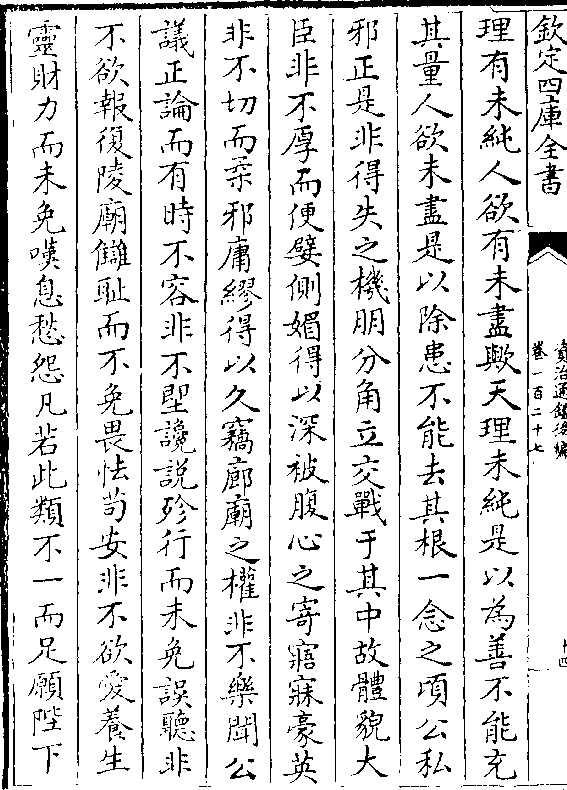 欽定四庫全書
資治通鑑後編
卷一百二十七
十四
理有未純人欲有未盡歟天理未純是以為善不能充
其量人欲未盡是以除患不能去其根一念之頃公私
邪正是非得失之機朋分角立交戰于其中故體貌大
臣非不厚而便嬖側媚得以深被腹心之寄寤寐豪英
非不切而柔邪庸繆得以久竊廊廟之權非不樂聞公
議正論而有時不容非不堲讒説殄行而未免誤聽非
不欲報復陵廟讎恥而不免畏怯苟安非不欲愛養生
靈財力而未免嘆息愁怨凡若此類不一而足願陛下